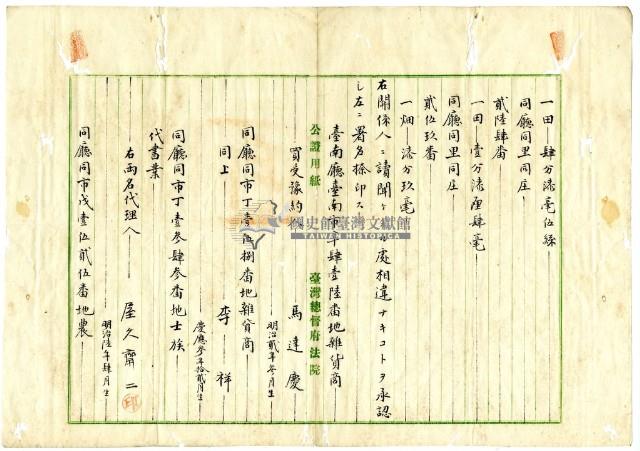 一田 肆分漆毫伍絲
同廳同里同庄
貳陸肆番
一田 壹分漆厘肆毫
同廳同里同庄
貳伍玖番
一畑 漆分玖毫
右關係人ニ讀聞ケ 處相違ナキコトヲ承認
シ左ニ署名捺印ス
公證用紙 臺灣總督府法院
臺南廳臺南市 肆壹陸番地雜貨商
買受豫約
馬達慶
明治貳年參月生
同廳同市丁壹 捌番地雜貨商
同上 李祥
慶應參年拾貳月生
同廳同市丁壹參肆參番地士族
代書業
右兩名代理人 屋久齊二
明治陸年肆月生
同廳同市戊壹伍貳伍番地農
歷史館臺灣文獻館
TAIWAN HISTORICA